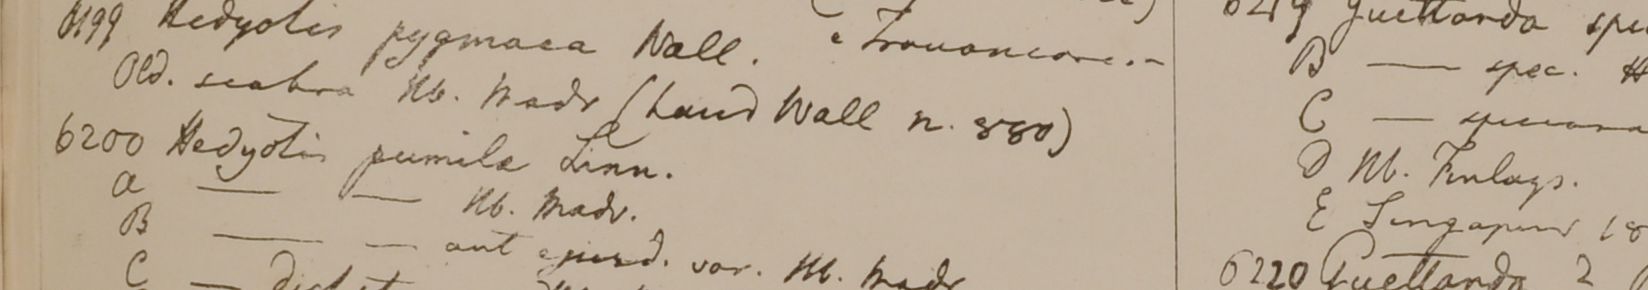 6199 Hedyotis pygmaea Wall. Travancore.
Old. scabra Hb. Madr (haud Wall n. 880)
6200 Hedyotis pumila Linn.
a — — Hb. Madr.
B — — aut ejusd. var. Hb. Madr
C —
6219 Guettarda spe
B — spec. H
C —
D Hb. Finlays.
E Singapur 18
6220 Guettarda 2